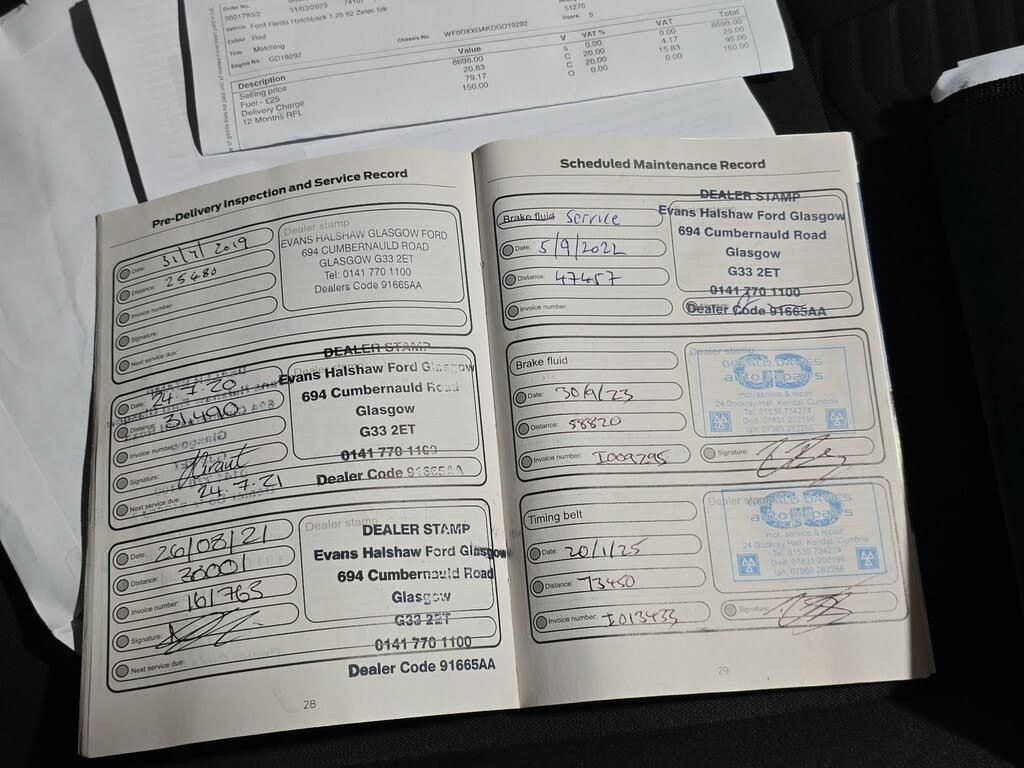 Order No.
9801793/2
31/03/2023
51270
Vehicle Ford Fiesta Hatchback 1.25 82 Zetec 5dr
Doors. 5
Colour Red
Chassis No.
Trim Matching
Engine No. GD19292
Description Value V VAT % VAT Total
Selling price 8698.00 S 0.00 0.00 8698.00
Fuel - £25 20.83 C 20.00 4.17 25.00
Delivery Charge 79.17 C 20.00 15.83 95.00
12 Months RFL 150.00 O 0.00 0.00 150.00
Pre-Delivery Inspection and Service Record
Date: 31/7/2019
Distance: 25480
Invoice number:
Signature:
Next service due:
Dealer stamp
EVANS HALSHAW GLASGOW FORD
694 CUMBERNAULD ROAD
GLASGOW G33 2ET
Tel: 0141 770 1100
Dealers Code 91665AA
Date: 24.7.20
Distance: 31,490
Invoice number:
Signature:
Next service due: 24.7.21
DEALER STAMP
Evans Halshaw Ford Glasgow
694 Cumbernauld Road
Glasgow
G33 2ET
0141 770 1100
Dealer Code 91665AA
Date: 26/08/21
Distance: 30001
Invoice number: 161763
Signature:
Next service due:
Dealer stamp
DEALER STAMP
Evans Halshaw Ford Glasgow
694 Cumbernauld Road
Glasgow
G33 2ET
0141 770 1100
Dealer Code 91665AA
28
Scheduled Maintenance Record
Brake fluid Service
Date: 5/9/2022
Distance: 47457
Invoice number:
DEALER STAMP
Evans Halshaw Ford Glasgow
694 Cumbernauld Road
Glasgow
G33 2ET
0141 770 1100
Dealer Code 91665AA
Brake fluid
Date: 30/9/23
Distance: 58820
Invoice number: I009295
Dealer stamp
GERALD DAVIES
auto repairs
mot, service & repair
24 Dockray Hall, Kendal, Cumbria
Tel: 01539 734274
Ged: 07831 202196
Ian: 07969 282266
Signature:
Timing belt
Date: 20/1/25
Distance: 73450
Invoice number: I013433
Dealer stamp
GERALD DAVIES
auto repairs
mot, service & repair
24 Dockray Hall, Kendal, Cumbria
Tel: 01539 734274
Ged: 07831 202196
Ian: 07969 282266
Signature:
29